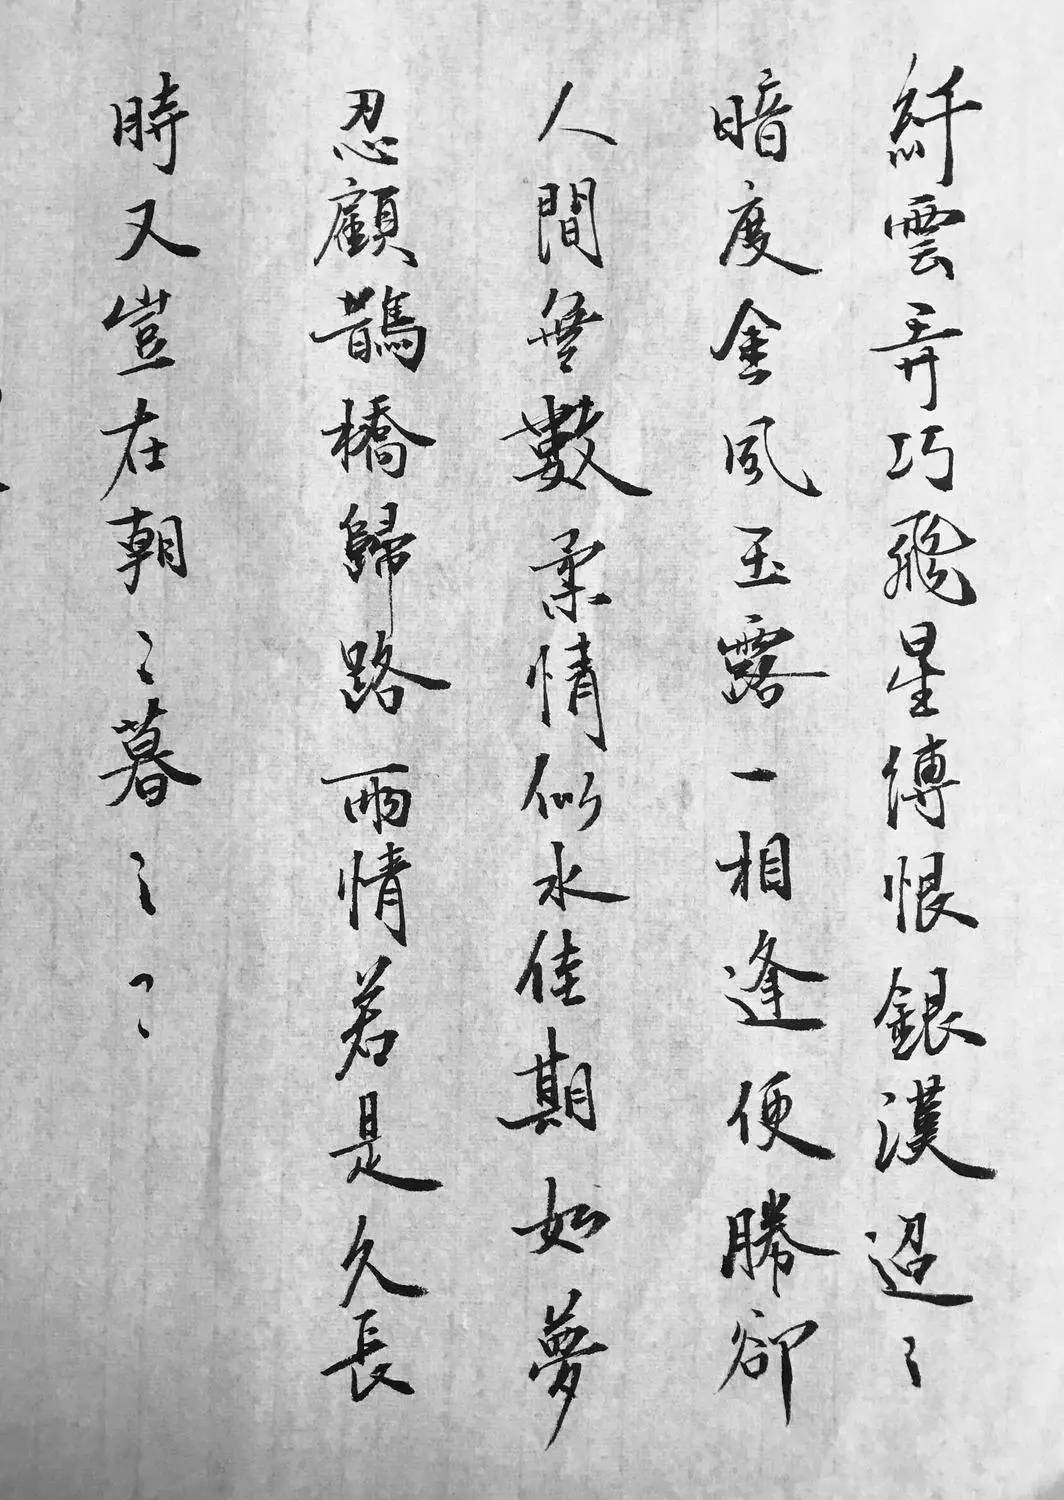 纤雲弄巧飛星傳恨銀漢迢〻
暗度金風玉露一相逢便勝卻
人間無數柔情似水佳期如夢
忍顧鵲橋歸路兩情若是久長
時又豈在朝〻暮〻〻